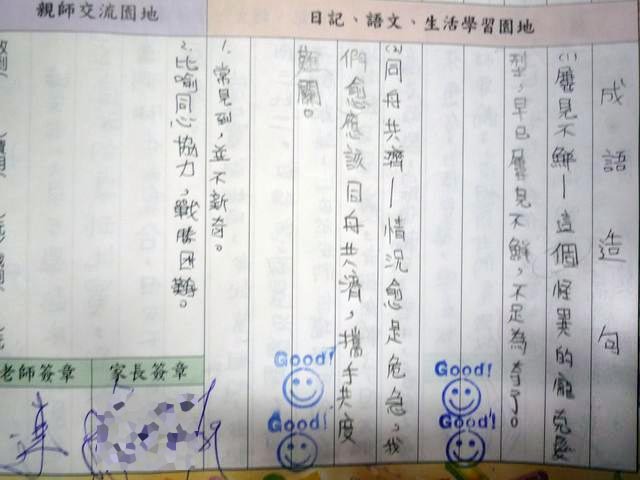 日記、語文、生活學習園地
成語造句
(1)屢見不鮮—這個怪異的龐克髮
型，早已屢見不鮮，不足為奇了。
(2)同舟共濟—情況愈是危急，我
們愈應該同舟共濟，攜手共度
難關。
1.常見到，並不新奇。
2.比喻同心協力，戰勝困難。
親師交流園地
Good!
Good!
Good!
Good!
家長簽章
老師簽章